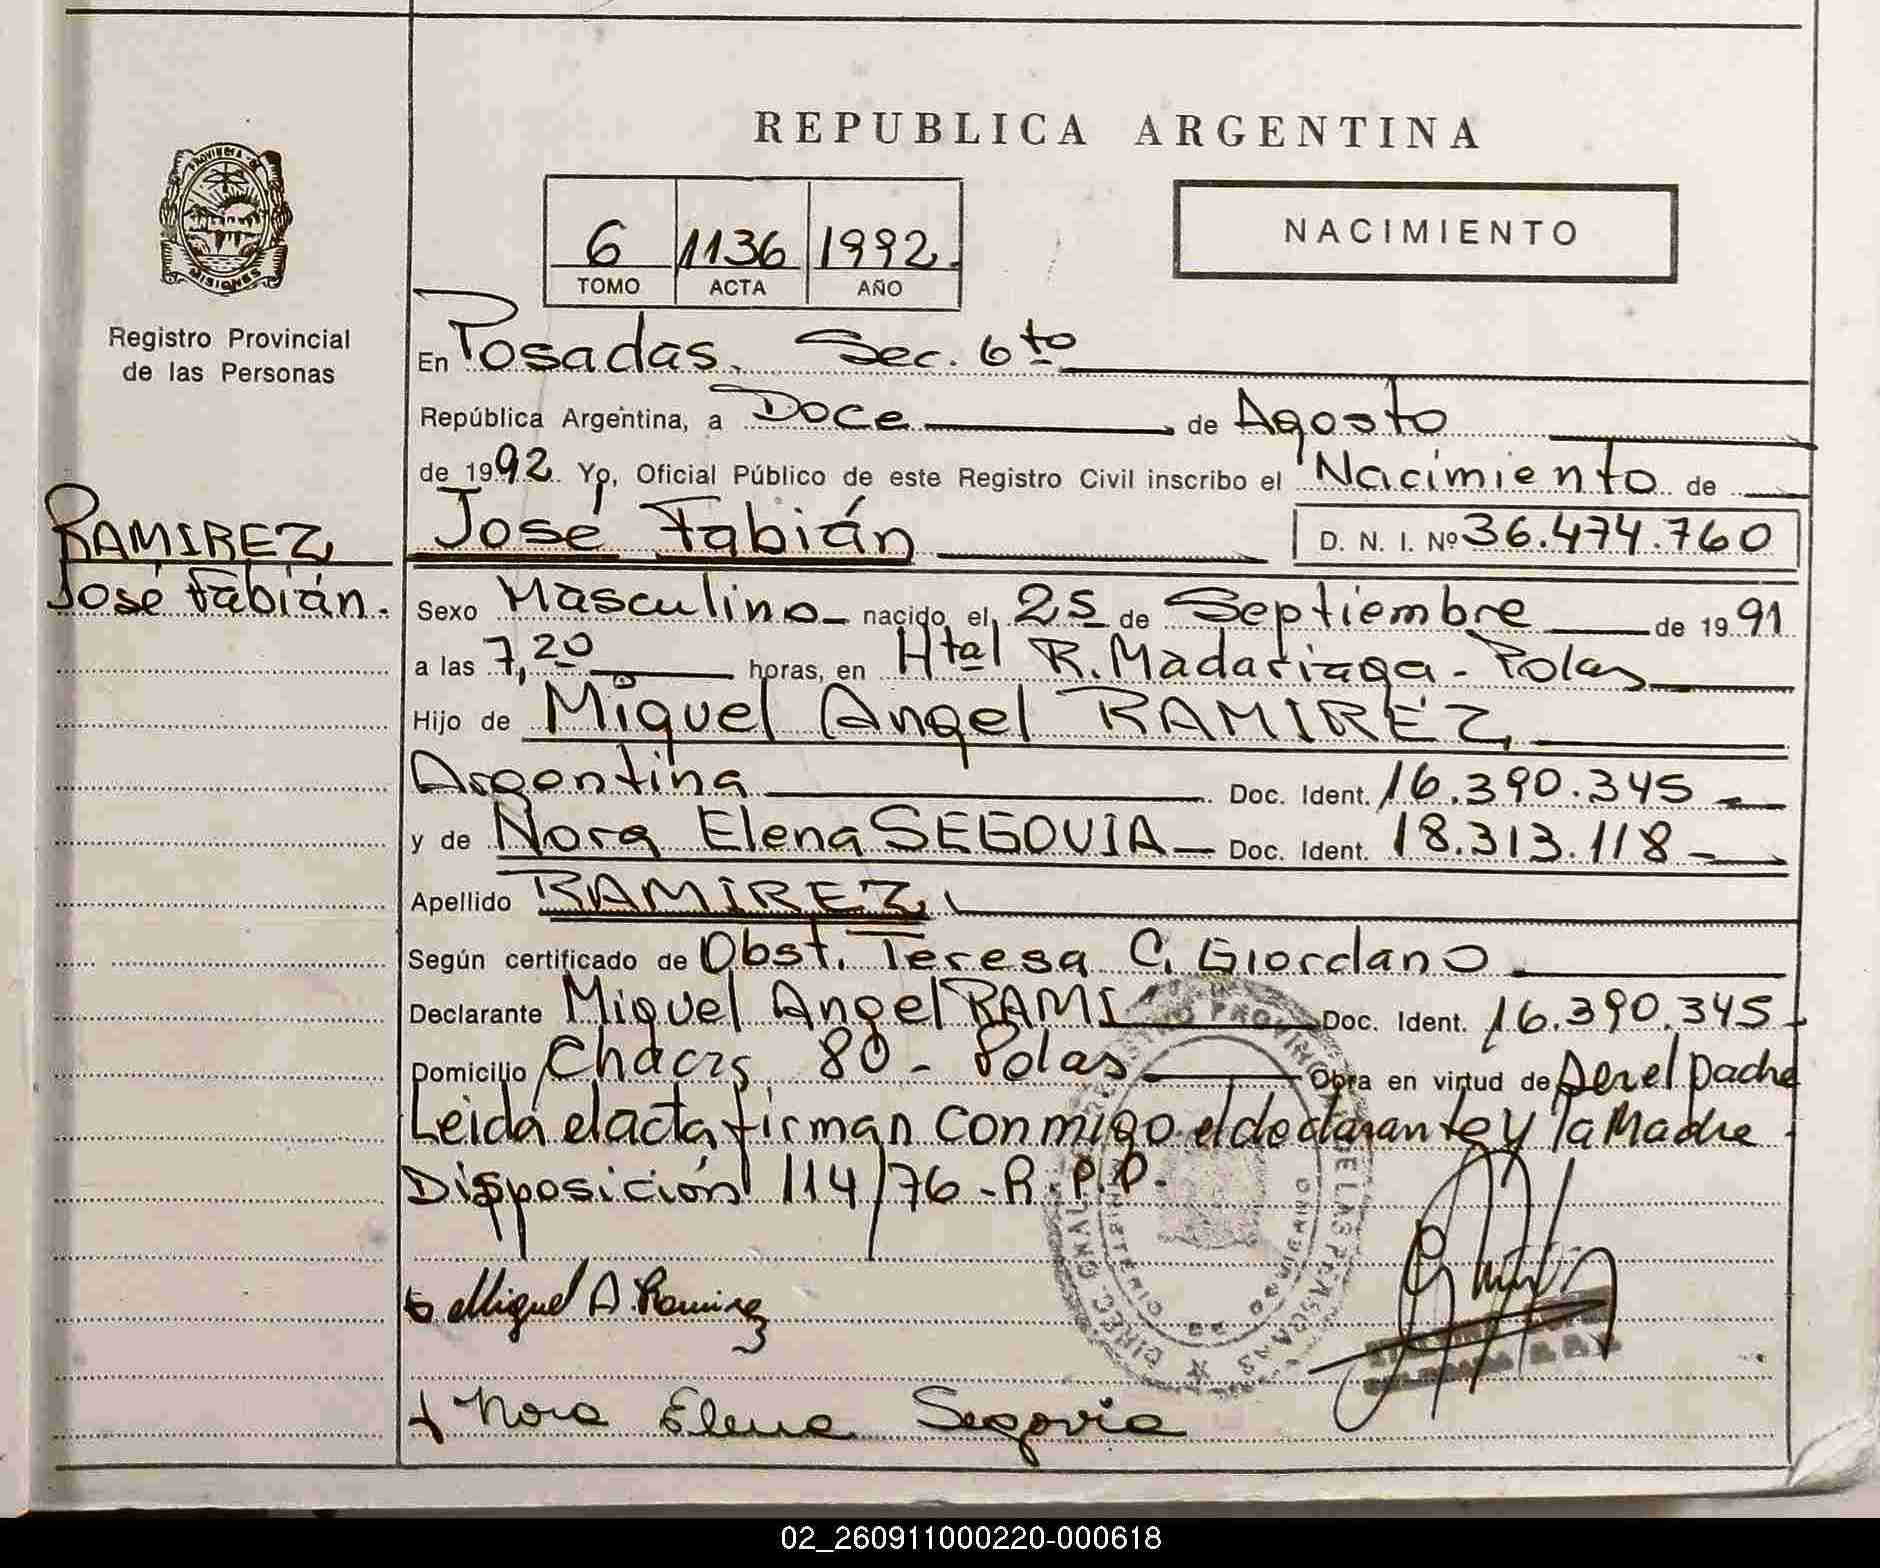 REPUBLICA ARGENTINA
PROVINCIA DE
MISIONES
6 1136 1992
TOMO ACTA AÑO
NACIMIENTO
Registro Provincial
de las Personas
En Posadas. Sec. 6to
República Argentina, a Doce de Agosto
de 1992. Yo, Oficial Público de este Registro Civil inscribo el Nacimiento de
RAMIREZ
José Fabián.
José Fabián D. N. I. Nº 36.474.760
Sexo Masculino nacido el 25 de Septiembre de 1991
a las 7,20 horas, en Htal R. Madariaga - Pdas
Hijo de Miguel Angel RAMIREZ
Argentina Doc. Ident. 16.390.345
y de Nora Elena SEGOVIA Doc. Ident. 18.313.118
Apellido RAMIREZ
Según certificado de Obst. Teresa C. Giordano
Declarante Miguel Angel RAMI Doc. Ident. 16.390.345
Domicilio Chacra 80 - Pdas Obra en virtud de ser el padre
Leida el acta firman conmigo el declarante y la Madre
Disposición 114/76 - R.P.P.
Miguel A. Ramirez
Nora Elena Segovia
02_260911000220-000618